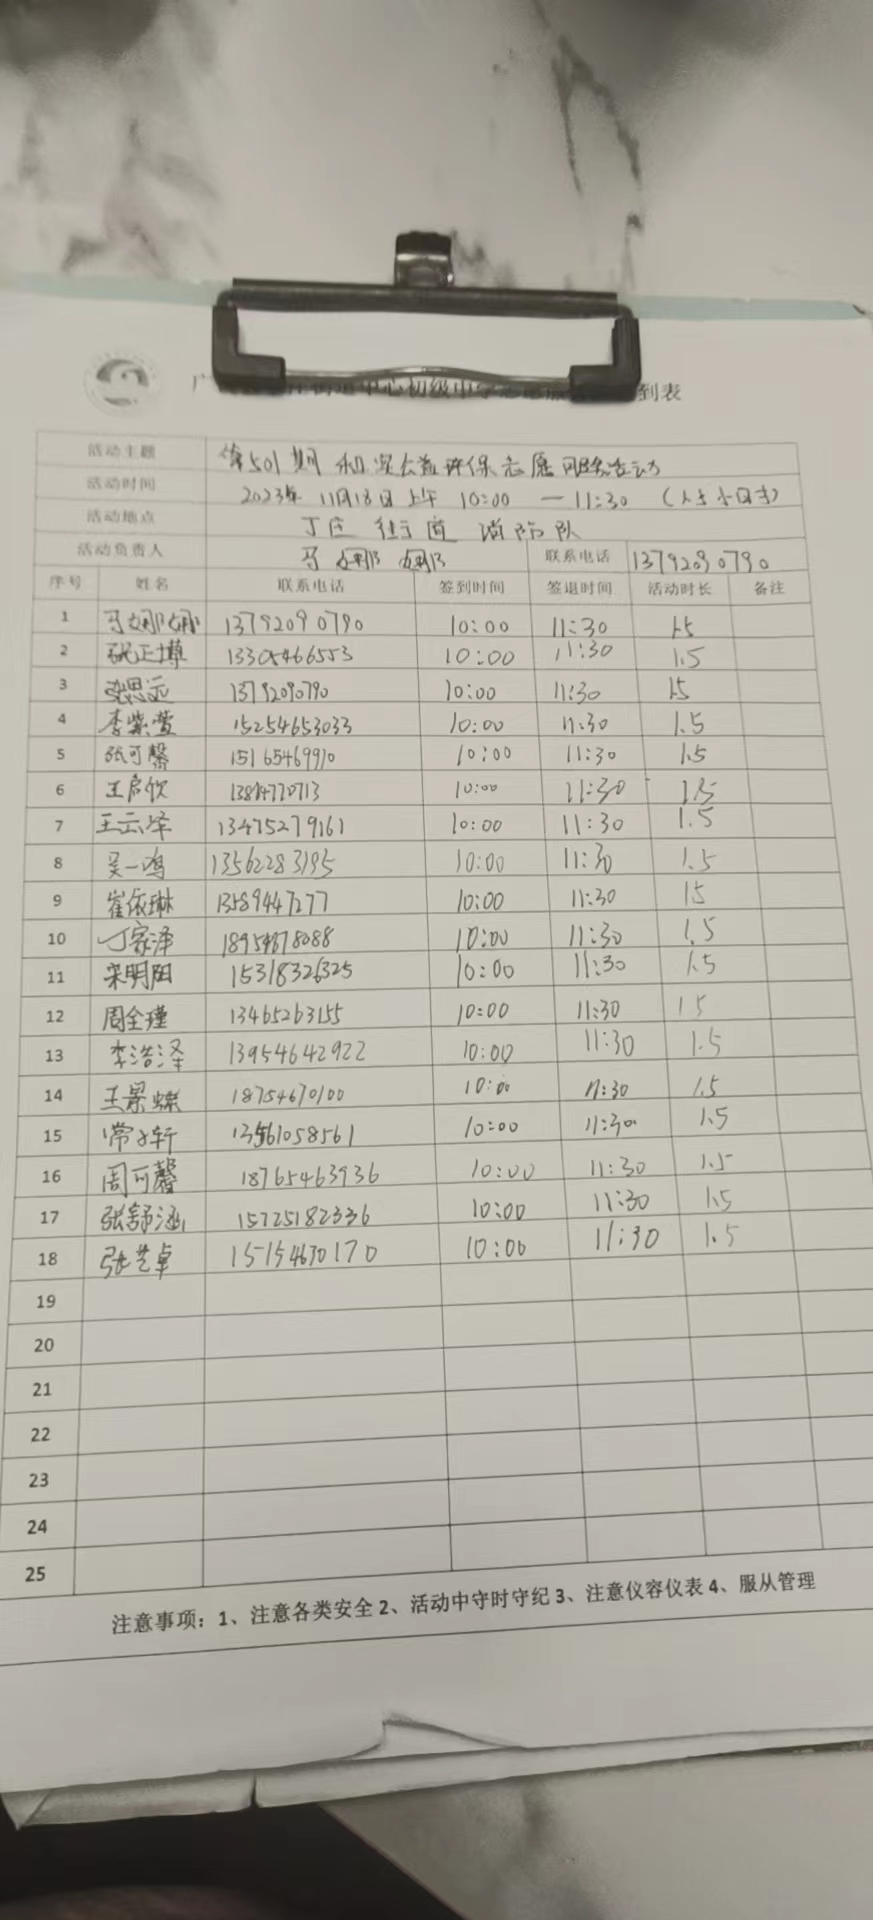 中心初级中学 到表
活动主题 第501期 和 公益环保志愿服务活动
活动时间 2023年 11月18日上午 10:00 — 11:30
活动地点 丁庄 街道 消防队
活动负责人 马娜娜 联系电话 13792090790
序号 姓名 联系电话 签到时间 签退时间 活动时长 备注
1 马娜娜 13792090790 10:00 11:30 1.5
2 张正博 13305466553 10:00 11:30 1.5
3 张思远 13792090790 10:00 11:30 1.5
4 李紫萱 15254653033 10:00 11:30 1.5
5 张可馨 15165469910 10:00 11:30 1.5
6 王启 10:00 11:30 1.5
7 王云泽 13475279161 10:00 11:30 1.5
8 吴一鸣 13562283195 10:00 11:30 1.5
9 崔依琳 13589447277 10:00 11:30 1.5
10 丁家泽 10:00 11:30 1.5
11 宋明阳 15318326325 10:00 11:30 1.5
12 周全瑾 13465263155 10:00 11:30 1.5
13 李浩泽 13954642922 10:00 11:30 1.5
14 王景 18754670100 10:00 11:30 1.5
15 常 轩 10:00 11:30 1.5
16 周可馨 18765463936 10:00 11:30 1.5
17 张舒涵 15725182336 10:00 11:30 1.5
18 张艺卓 15154630170 10:00 11:30 1.5
19
20
21
22
23
24
25
注意事项：1、注意各类安全 2、活动中守时守纪 3、注意仪容仪表 4、服从管理